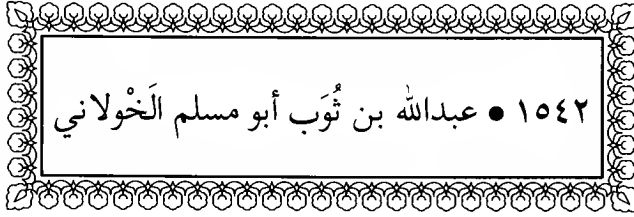 ١٥٤٢ ● عبدالله بن ثُوَب أبو مسلم الَخْولاني